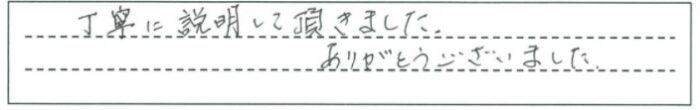 丁寧に説明して頂きました。
ありがとうございました。